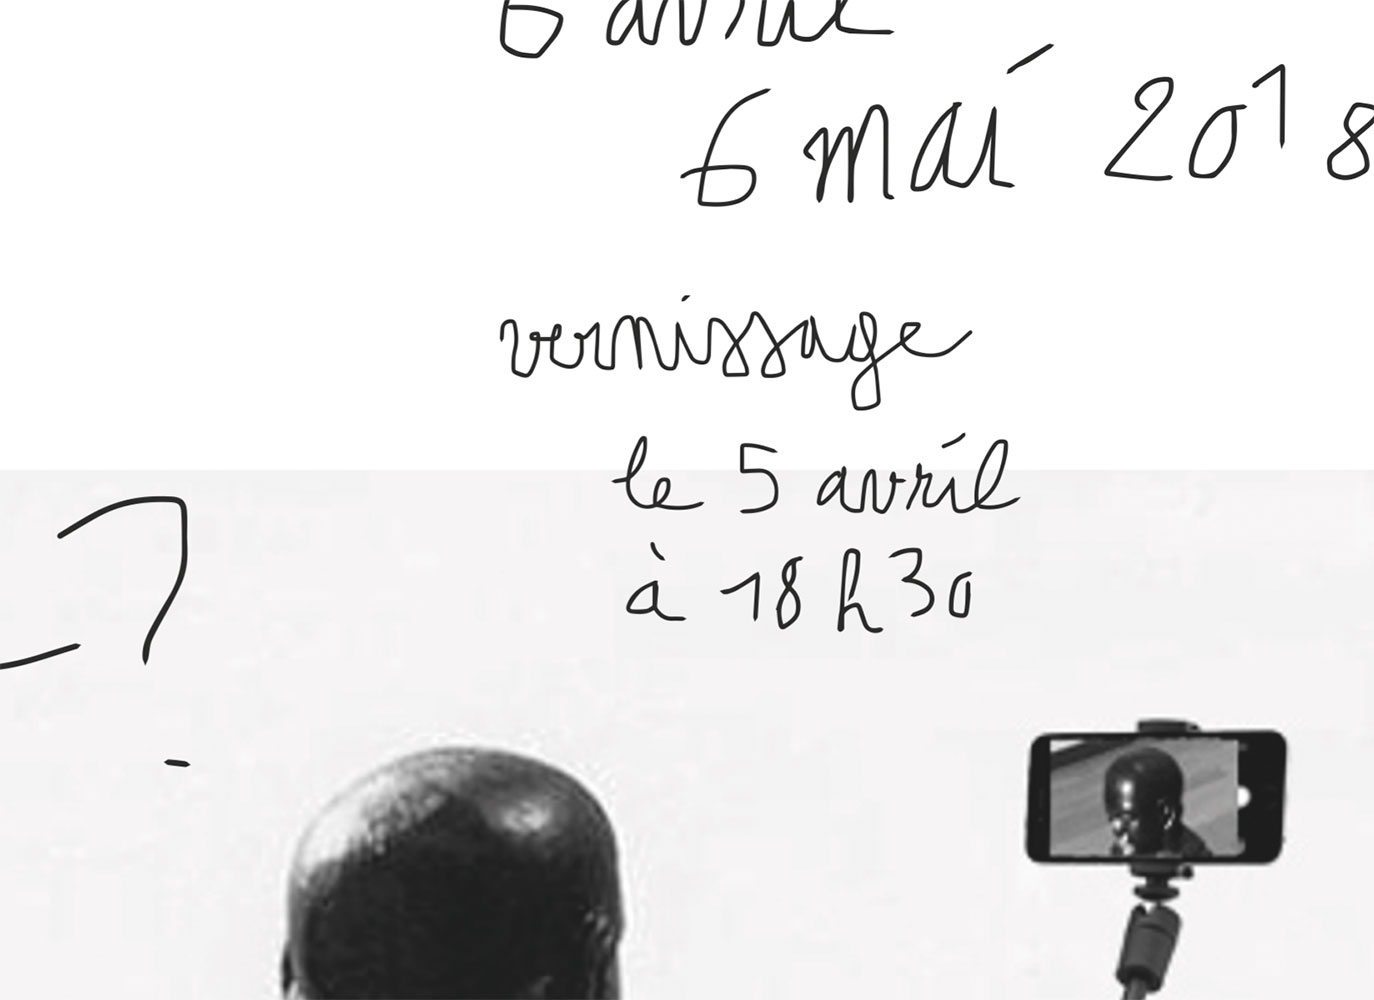 6 avril
6 mai 2018
vernissage
le 5 avril
à 18h30
?